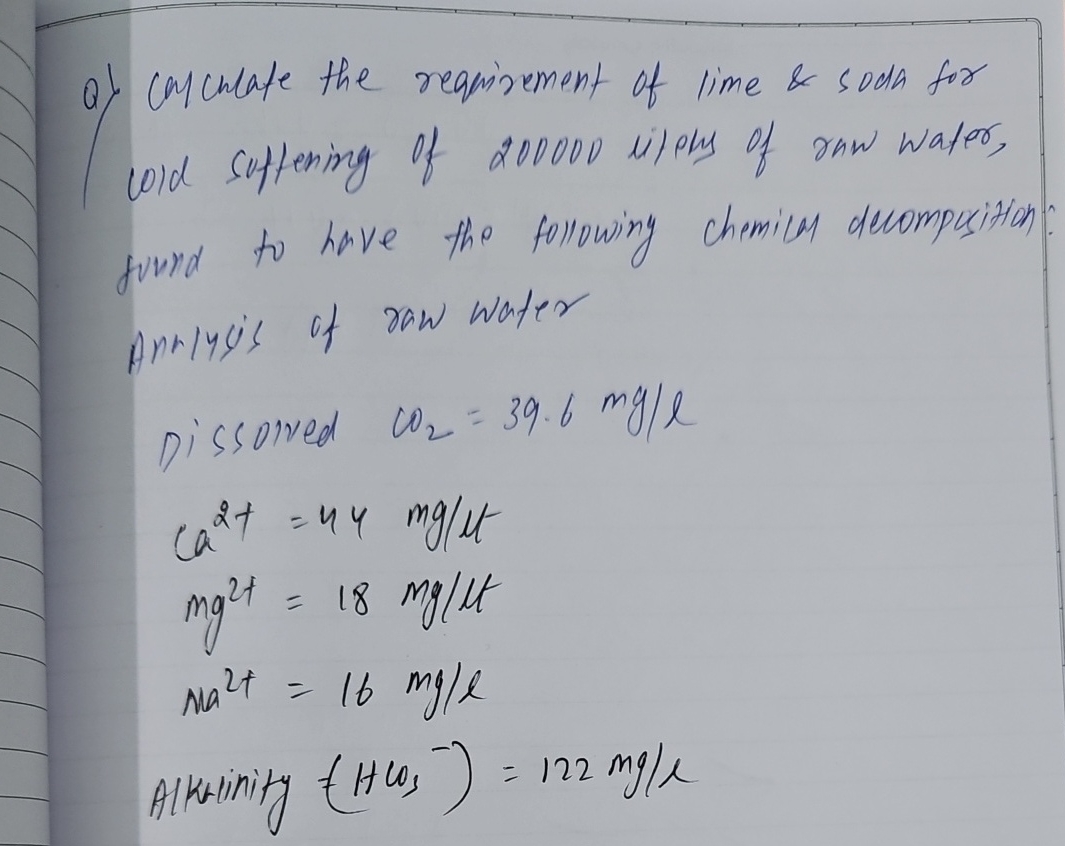 Q) Calculate the requirement of lime & soda for
cold softening of 200000 liters of raw water,
found to have the following chemical decomposition:
Analysis of raw water
Dissolved CO₂ = 39.6 mg/l
Ca²⁺ = 44 mg/lt
mg²⁺ = 18 mg/lt
Na²⁺ = 16 mg/l
Alkalinity (HCO₃⁻) = 122 mg/l